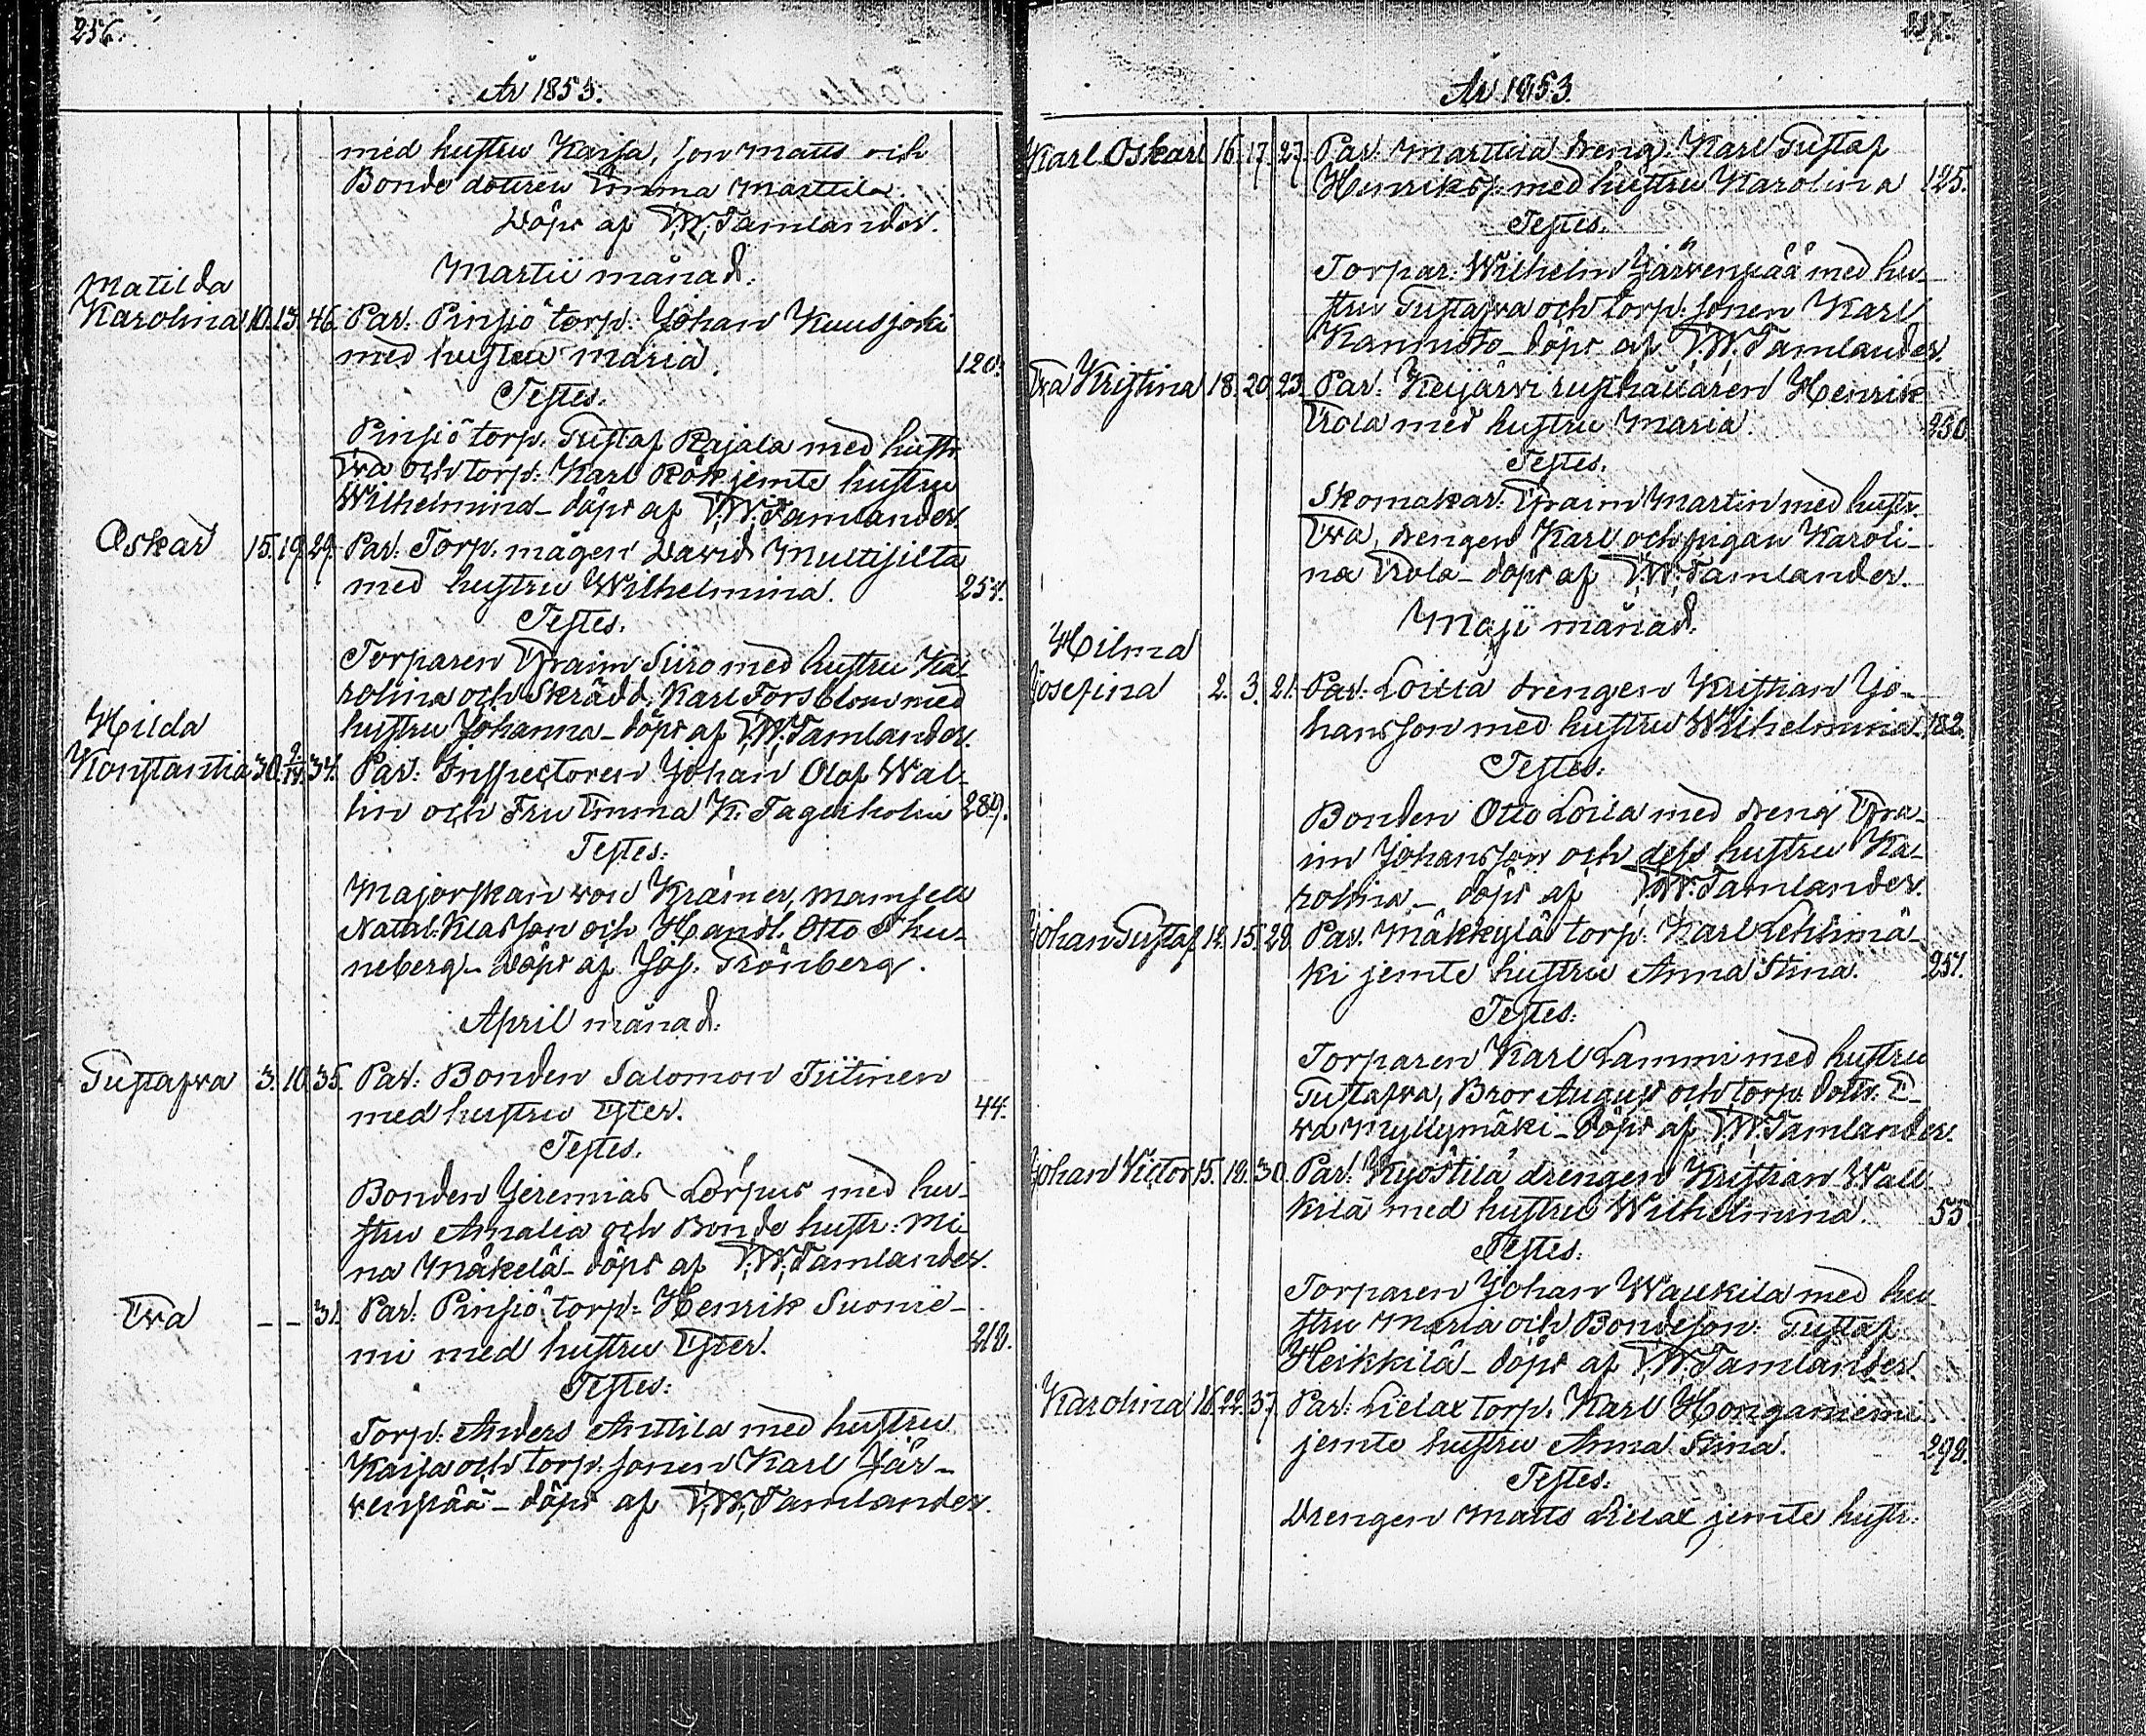 256.
År 1853.
med hustru Kaisa, son Matts och
Bonde dottren Emma Marttila
Döpt af F. W. Tamlander.
Martii månad.
Matilda
Karolina 10. 13. 46. Par. Pinsiö torp: Johan Kuusjoki
med hustru Maria. 120.
Testes.
Pinsiö torp. Gustaf Rajala med hustr.
Eva och torp: Karl Rök jemte hustru
Wilhelmina – döpt af F. W. Tamlander.
Oskar 15. 19. 29. Par: Torp. mågen David Multisilta
med hustru Wilhelmina. 254.
Testes.
Torparen Efraim Siiro med hustru Ka-
rolina och Skrädd. Karl Forsblom med
hustru Johanna – döpt af F. W. Tamlander.
Hilda
Konstantia 30. 9/14. 34. Par: Inspectoren Johan Olof Wal-
lin och Fru Emma K. Fagerholm 289.
Testes:
Majorskan von Kræmer, Mamsell
Natal: Klasson och Handl. Otto Thu-
neberg – Döpt af Jos. Grönberg.
April månad.
Gustafva 3. 10. 35. Par: Bonden Salomon Tiitinen
med hustru Ester. 44.
Testes.
Bonden Jeremias Lorpus med hu-
stru Amalia och Bonde hustr: Mi-
na Mäkelä – döpt af F. W. Tamlander.
Eva – – 31. Par: Pinsiö torp: Henrik Suonie-
mi med hustru Ester. 218.
Testes:
Torp: Anders Anttila med hustru
Kaisa och torp. sonen Karl Jär-
venpää – döpt af F. W. Tamlander.
257.
År 1853.
Karl Oskar 16. 17. 27. Par: Marttila dreng: Karl Gustaf
Henrikss. med hustru Karolina 125.
Testes.
Torpar. Wilhelm Järvenpää med hu-
stru Gustafva och torp: sonen Karl
Kannisto – döpt af F. W. Tamlander.
Eva Kristina 18. 20. 23. Par: Keijärvi rusthållaren Henrik
Erola med hustru Maria. 230.
Testes.
Skomakar: Efraim Martin med hustr.
Eva, drengen Karl och pigan Karoli-
na Erola – döpt af F. W. Tamlander.
Maji månad.
Hilma
Josefina 2. 3. 21. Par: Loilla drengen Kristian Jo-
hansson med hustru Wilhelmina. 182.
Testes:
Bonden Otto Loila med dreng Efra-
im Johansson och dess hustru Ka-
rolina – döpt af F. W. Tamlander.
Johan Gustaf 12. 15. 28. Par: Mäkkylä torp: Karl Lehtimä-
ki jemte hustru Anna Stina. 257.
Testes:
Torparen Karl Lammi med hustru
Gustafva, Bror August och torp. dottr. E-
va Myllymäki – Döpt af F. W. Tamlander.
Johan Victor 15. 18. 30. Par: Kyöstilä drengen Kristian Wall-
kila med hustru Wilhelmina. 55.
Testes:
Torparen Johan Wallkila med hu-
stru Maria och Bondeson: Gustaf
Heikkilä – döpt af F. W. Tamlander.
Karolina 16. 22. 37. Par: Lielax torp. Karl Honganiemi
jemte hustru Anna Stina. 298.
Testes:
Drengen Matts Lielax jemte hustr.